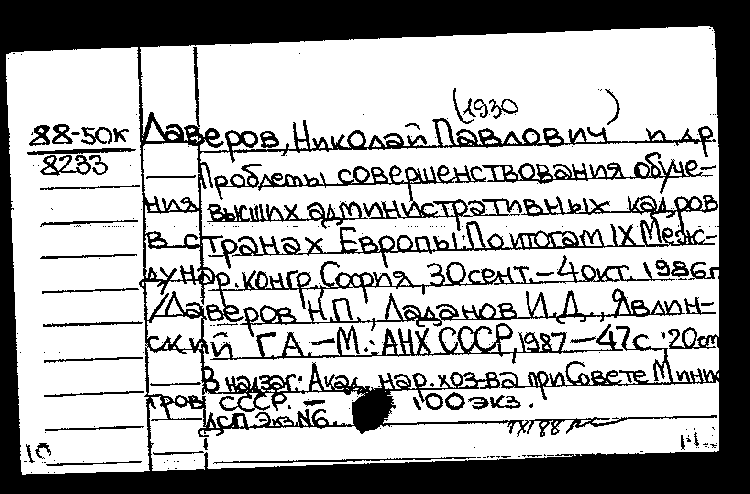 (1930 )
88-50к Лаверов, Николай Павлович и др
8233 Проблемы совершенствования обуче-
ния высших административных кадров
в странах Европы: По итогам IX Меж-
дунар. конгр., София, 30 сент. – 4 окт. 1986г
/Лаверов Н.П., Ладанов И.Д., Явлин-
ский Г.А. – М.: АНХ СССР, 1987 – 47с ; 20см
В надзаг.: Акад. нар. хоз-ва при Совете Минис
тров СССР. – 100 экз.
ДСП. Экз N6.
1X188
10